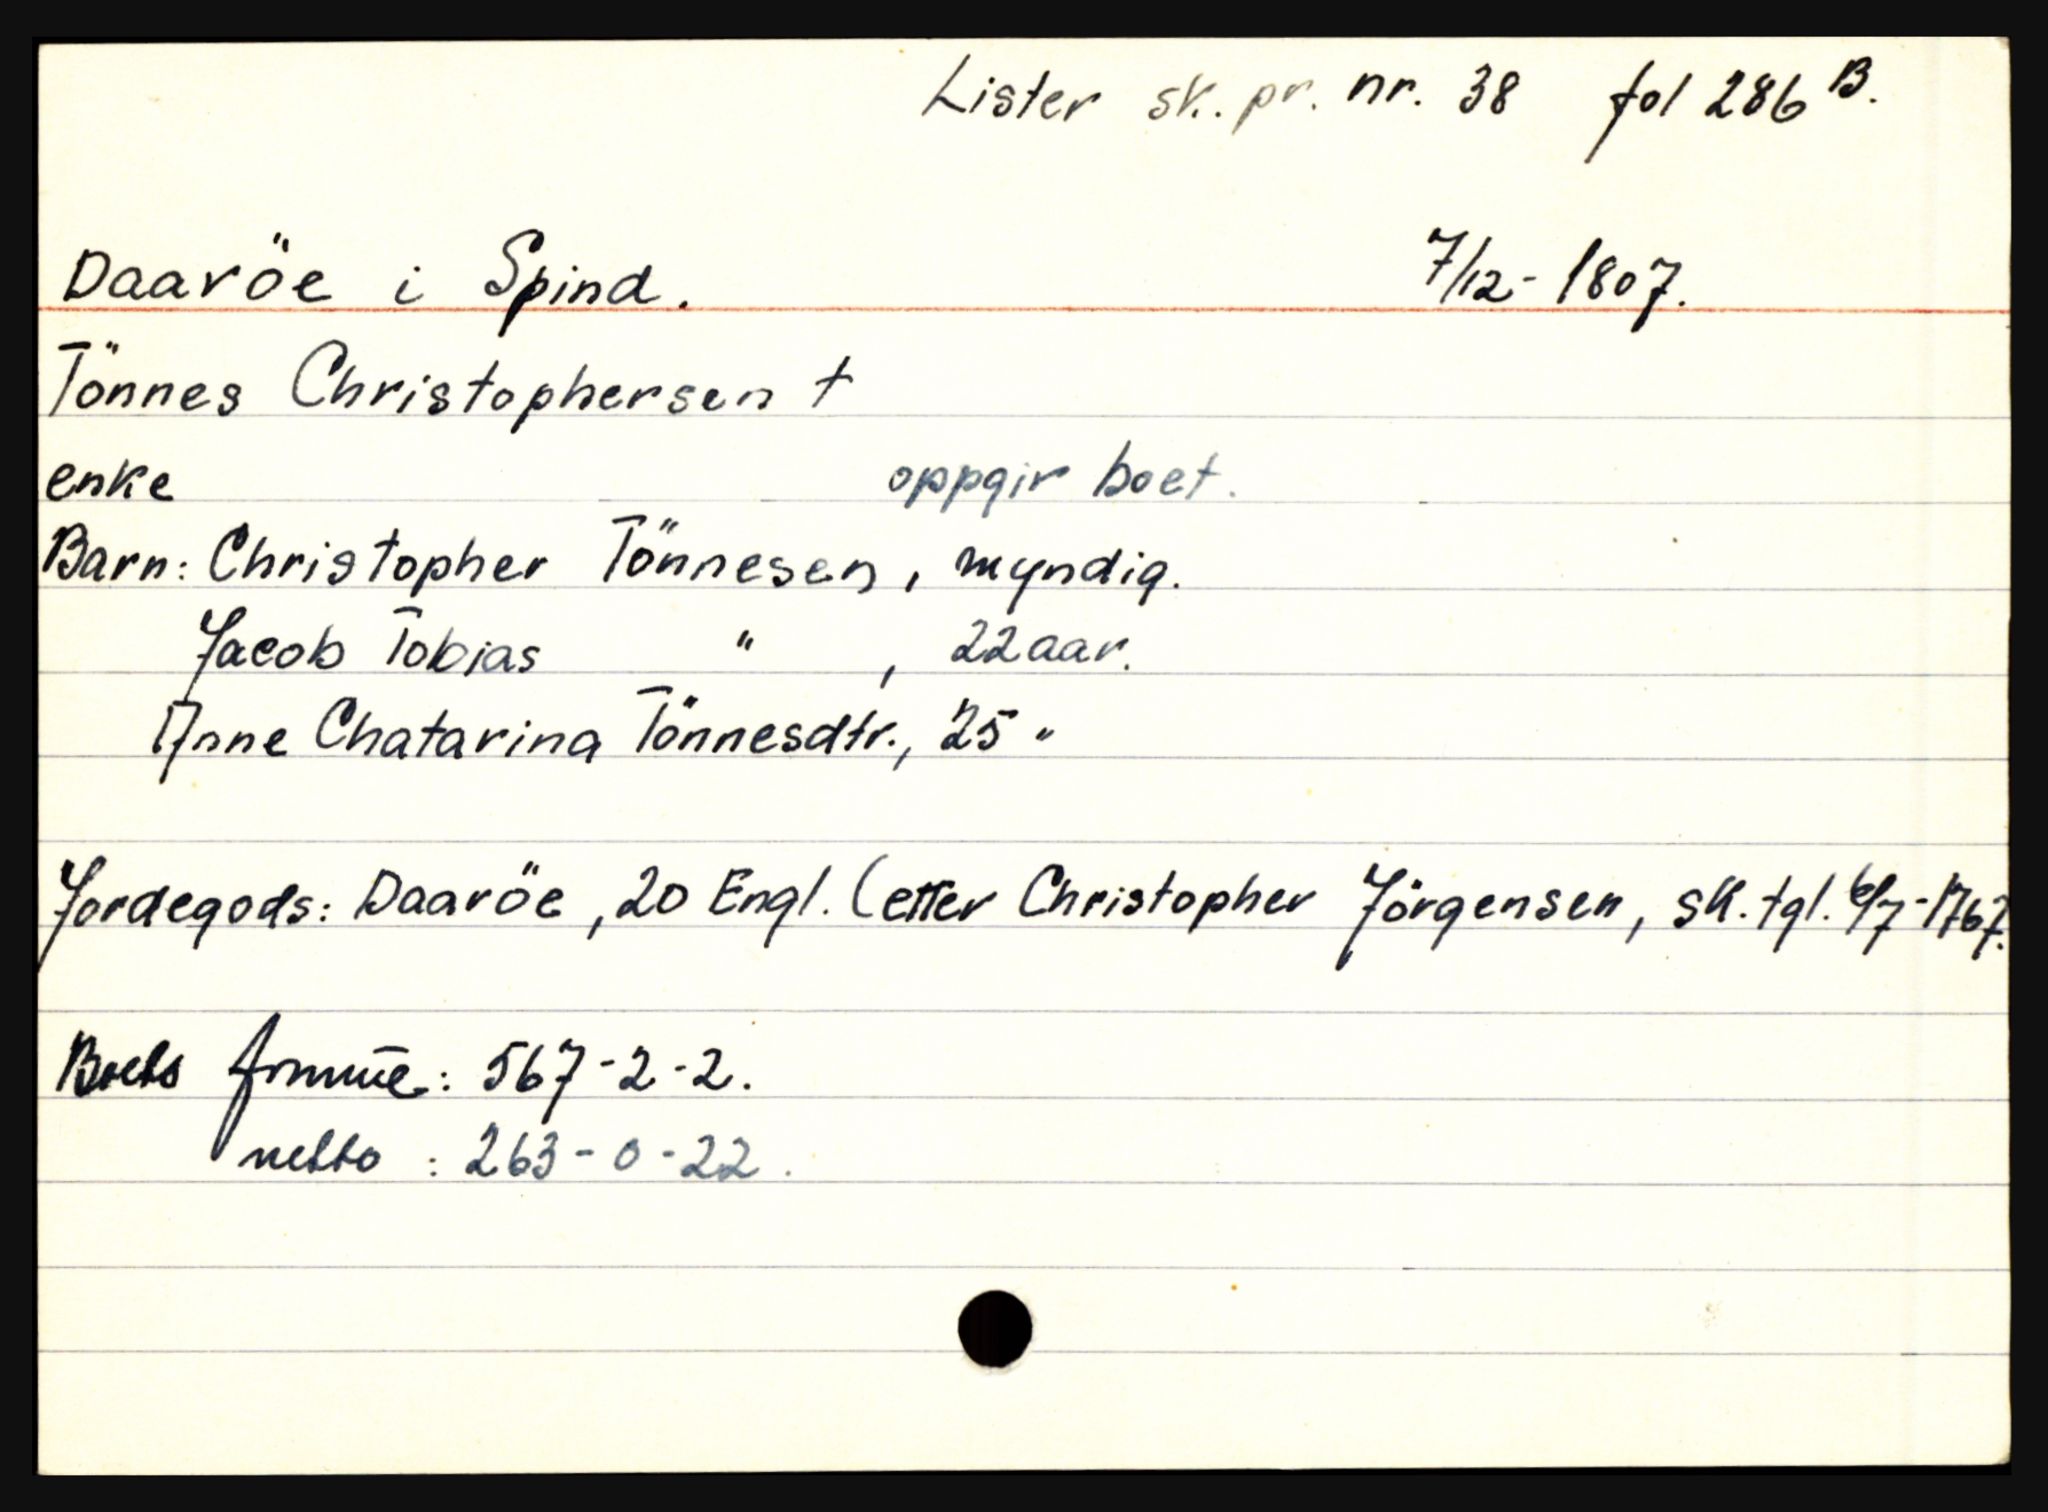 Lister sk. pr. nr. 38 fol 286 B.
Daaröe i Spind. 7/12-1807.
Tönnes Christophersen †
enke oppgir boet.
Barn: Christopher Tönnesen, myndig.
Jacob Tobias " , 22 aar.
Anne Chatarina Tönnesdtr., 25 "
Jordegods: Daaröe, 20 Engl. (etter Christopher Jörgensen, sk. tgl. 6/7-1767.
Boets formüe: 567-2-2.
netto : 263-0-22.